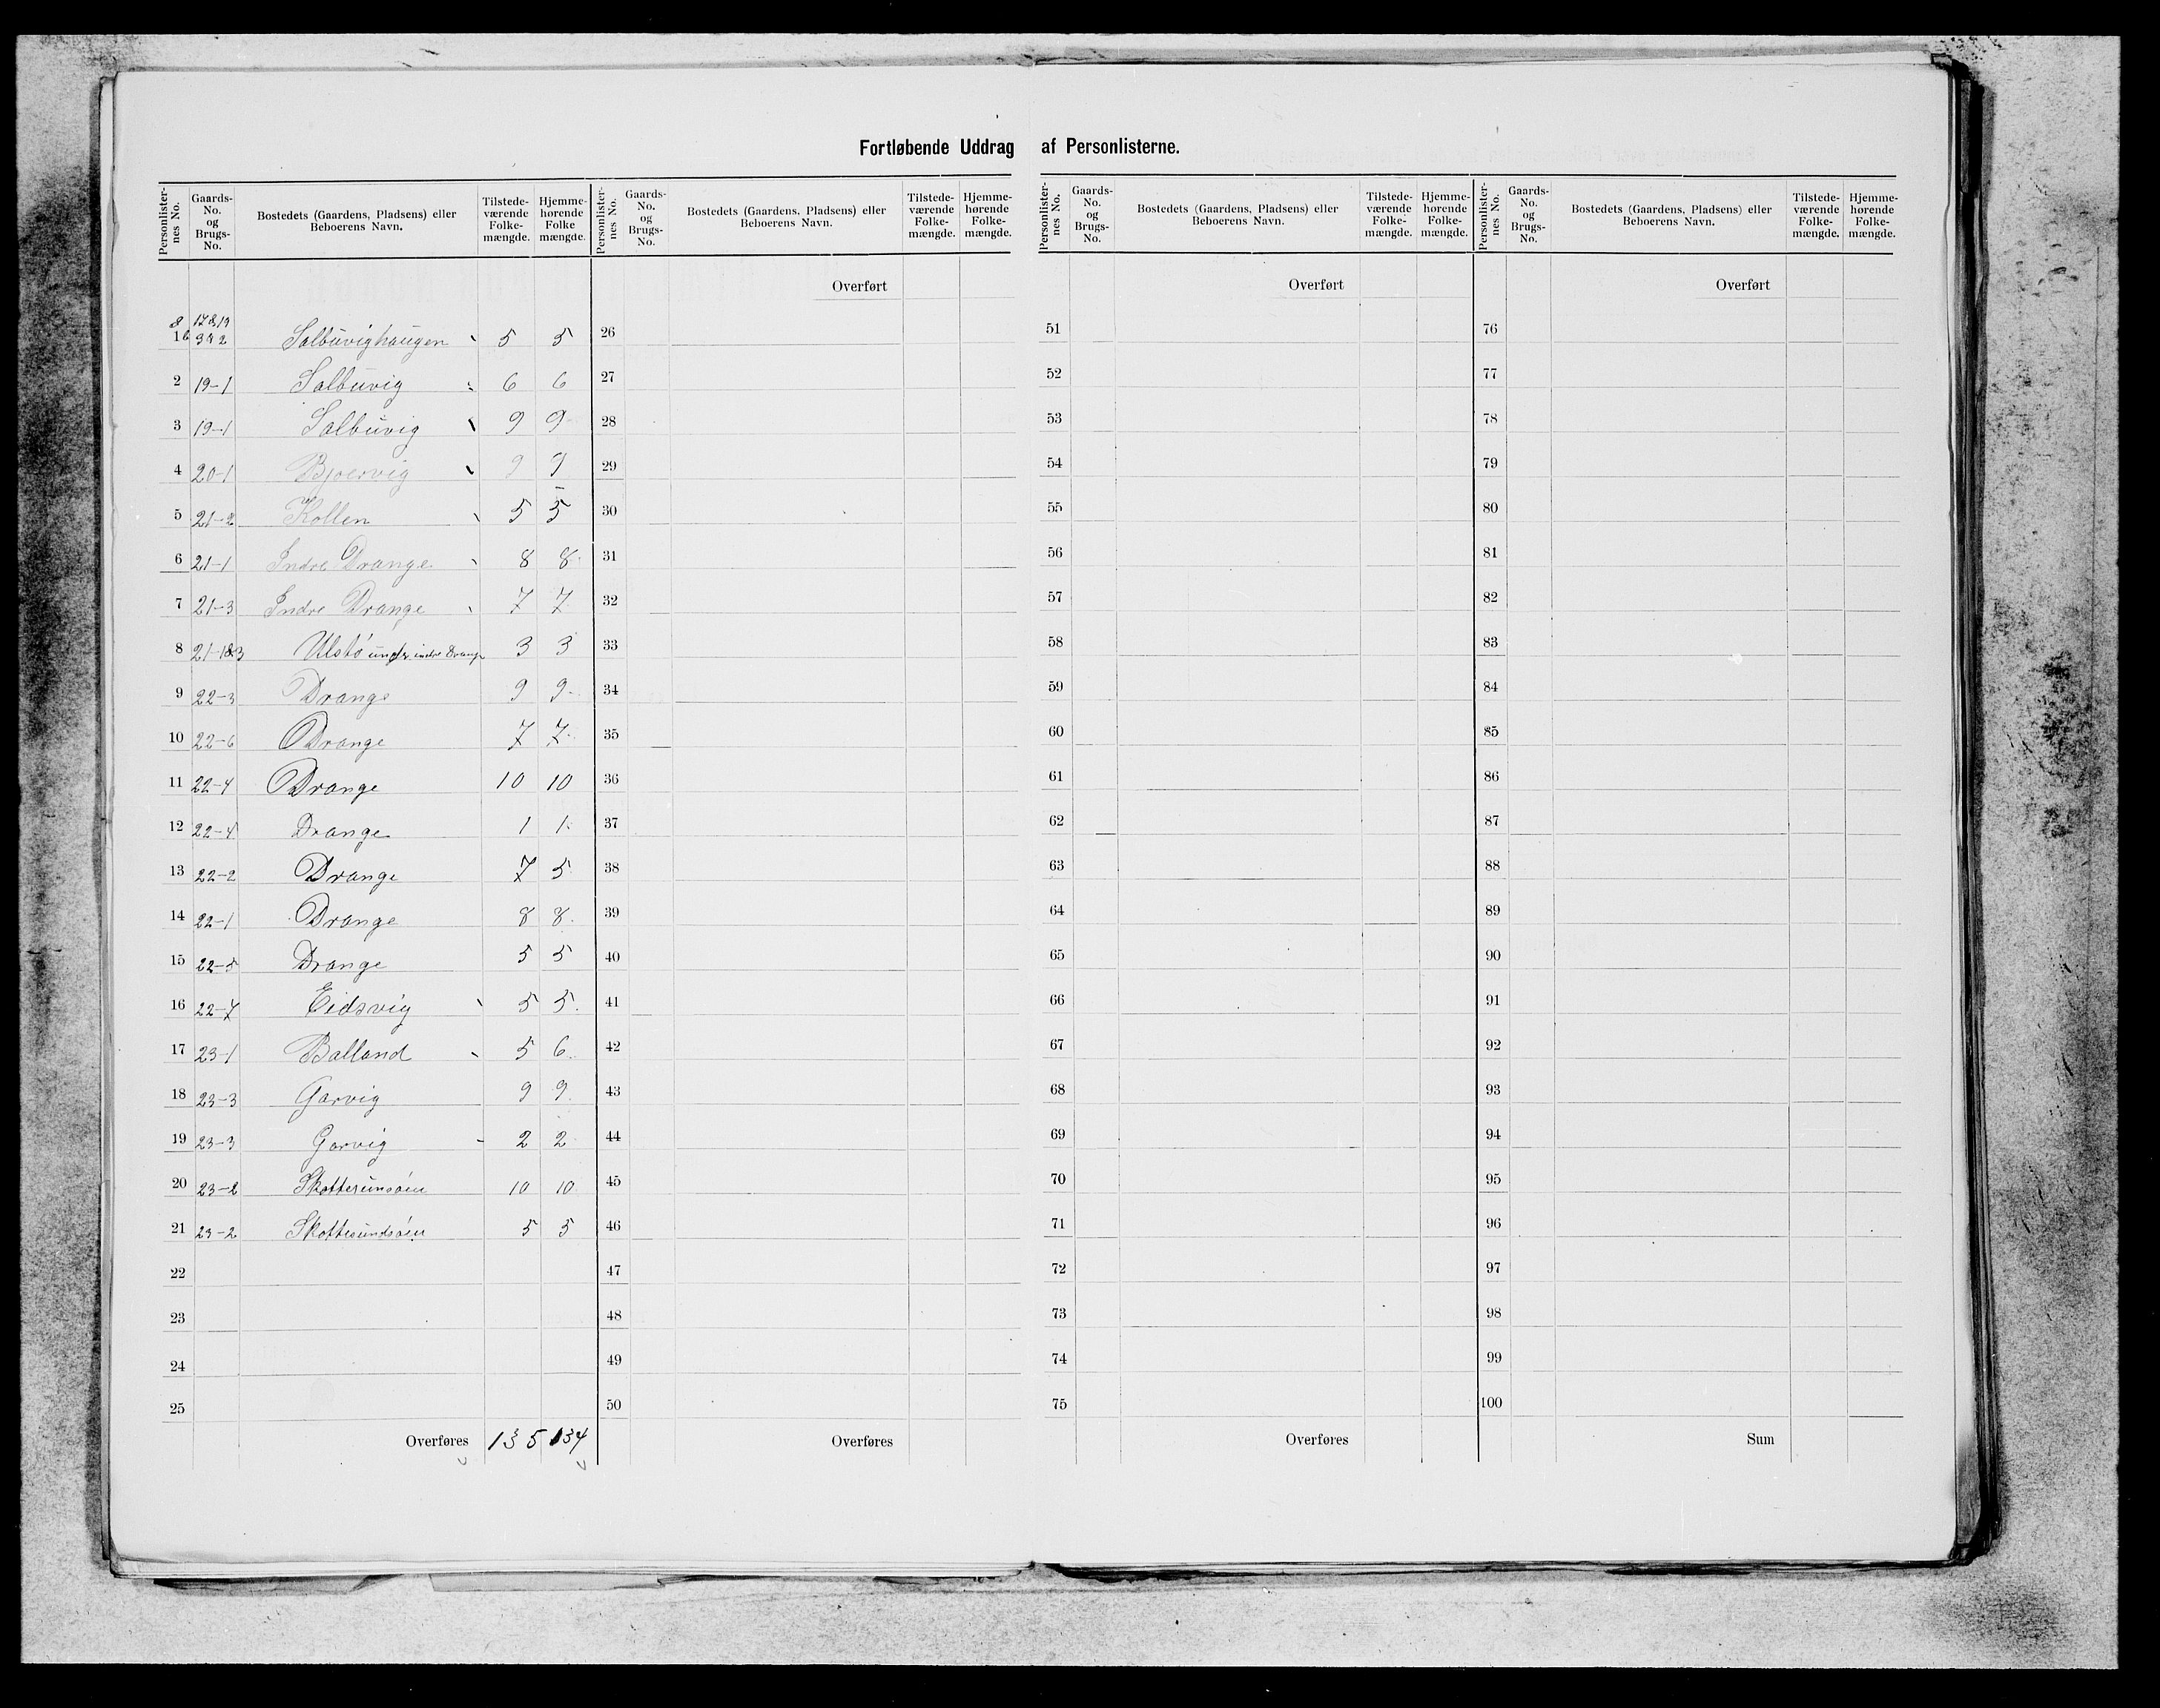 Fortløbende Uddrag af Personlisterne.
Personlister-nes No. Gaards-No. og Brugs-No. Bostedets (Gaardens, Pladsens) eller Beboerens Navn. Tilstede-værende Folke-mængde. Hjemme-hørende Folke mængde. Personlister-nes No. Gaards-No. og Brugs-No. Bostedets (Gaardens, Pladsens) eller Beboerens Navn. Tilstede-værende Folke-mængde. Hjemme-hørende Folke-mængde. Personlister-nes No. Gaards-No. og Brugs-No. Bostedets (Gaardens, Pladsens) eller Beboerens Navn. Tilstede-værende Folke-mængde. Hjemme-hørende Folke-mængde. Personlister-nes No. Gaards-No. og Brugs-No. Bostedets (Gaardens, Pladsens) eller Beboerens Navn. Tilstede-værende Folke-mængde. Hjemme-hørende Folke-mængde.
Overført Overført Overført
17&19
1 Salbuvighaugen 5 5 26 51 76
2 19-1 Salbuvig 6 6 27 52 77
3 19-1 Salbuvig 9 9 28 53 78
4 20-1 Bjoervig 9 9 29 54 79
5 21-2 Kollen 5 5 30 55 80
6 21-1 Indre Drange 8 8 31 56 81
7 21-3 Indre Drange 7 7 32 57 82
8 21-1&3 Ulstø under indre Drange 3 3 33 58 83
9 22-3 Drange 9 9 34 59 84
10 22-6 Drange 7 7 35 60 85
11 22-4 Drange 10 10 36 61 86
12 22-4 Drange 1 1 37 62 87
13 22-2 Drange 7 5 38 63 88
14 22-1 Drange 8 8 39 64 89
15 22-5 Drange 5 5 40 65 90
16 22-7 Eidsvig 5 5 41 66 91
17 23-1 Balland 5 6 42 67 92
18 23-3 Garvig 9 9 43 68 93
19 23-3 Garvig 2 2 44 69 94
20 23-2 Skottesunsøen 10 10 45 70 95
21 23-2 Skottesundsøen 5 5 46 71 96
22 47 72 97
23 48 73 98
24 49 74 99
25 50 75 100
Overføres 135 134 Overføres Overføres Sum